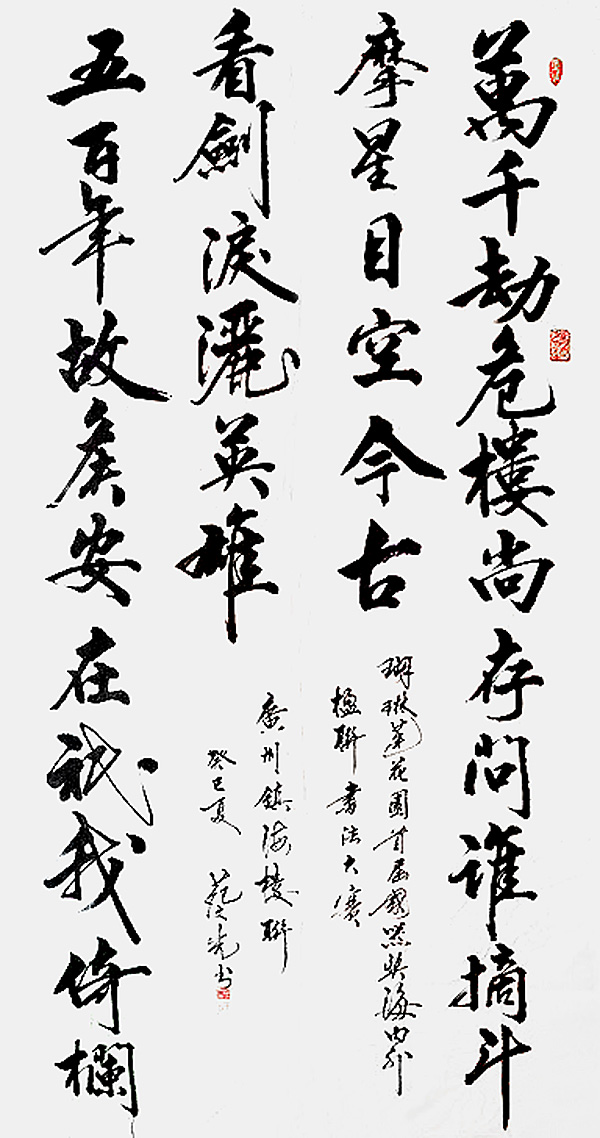 萬千劫危樓尚存問誰摘斗
摩星目空今古
蓮花園首屆國際海內外
楹聯書法大
五百年故侯安在祇我倚欄
看劍淚灑英雄
廣州鎮海樓聯
癸巳夏 書